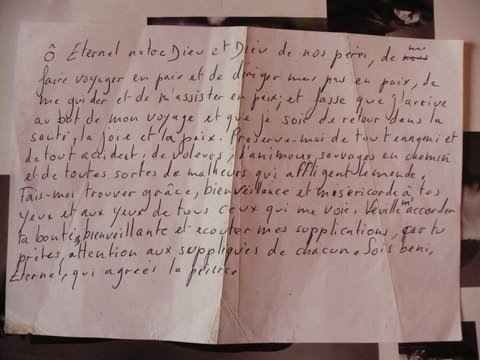 Ô Eternel notre Dieu et Dieu de nos pères, de me
faire voyager en paix et de diriger mes pas en paix, de
me guider et de m'assister en paix, et fasse que j'arrive
au but de mon voyage et que je sois de retour dans la
santé, la joie et la paix. Préserve-moi de tout ennemi et
de tout accident, de voleurs, d'animaux sauvages en chemin
et de toutes sortes de malheurs qui affligent le monde.
Fais-moi trouver grâce, bienveillance et miséricorde à tes
yeux et aux yeux de tous ceux qui me voie. Veuille m'accorder
ta bonté bienveillante et écouter mes supplications, car tu
prêtes attention aux suppliques de chacun. Sois béni,
Eternel, qui agrées la prière.